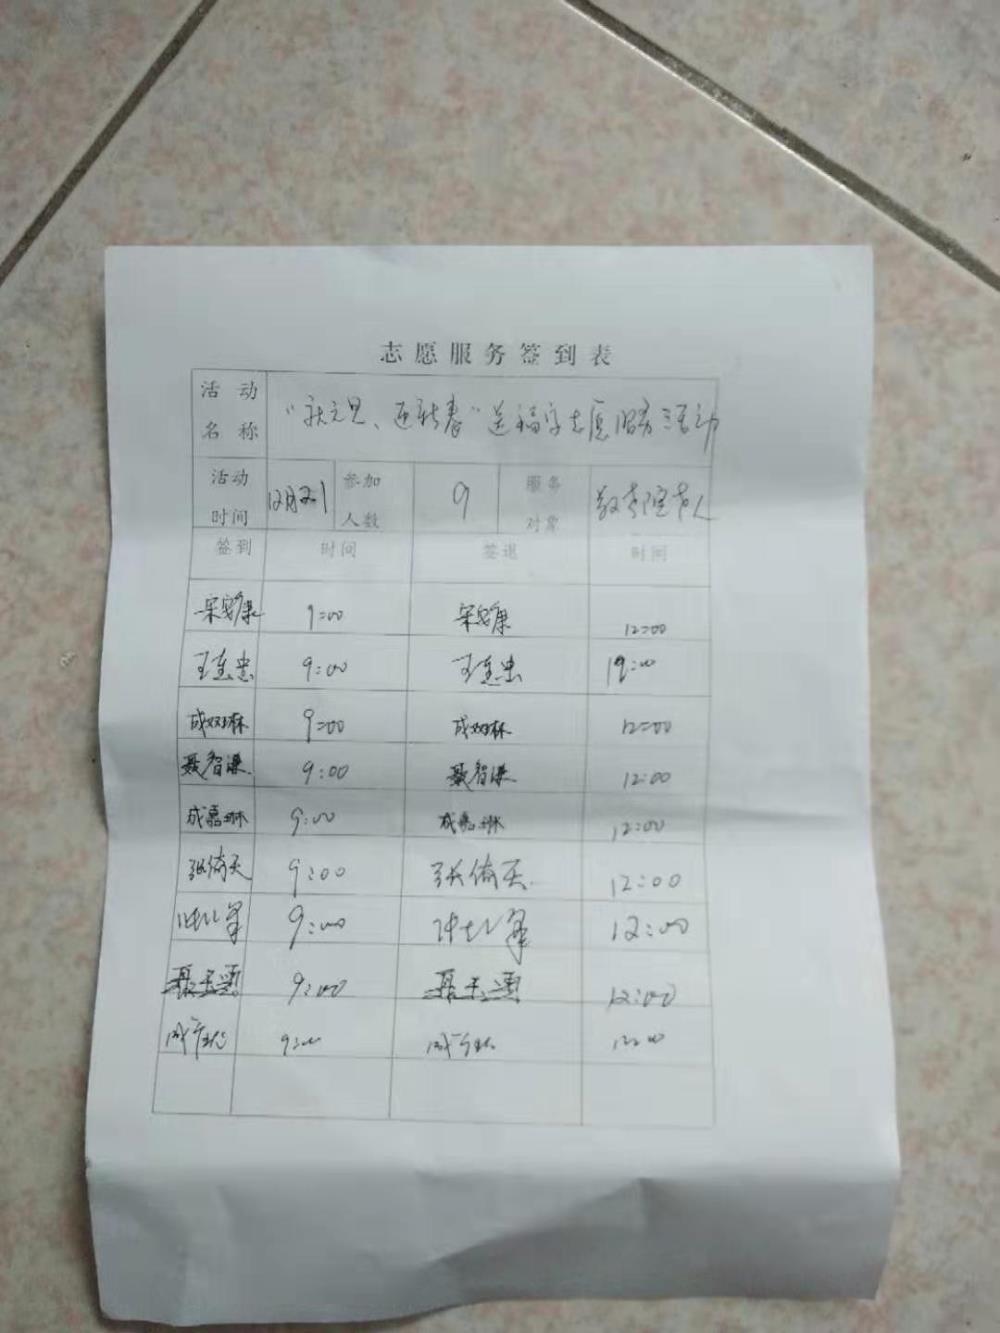 志愿服务签到表
活动名称 "庆元旦、迎新春"送福字志愿服务活动
活动时间 12月21 参加人数 9 服务对象 敬老院老人
签到 时间 签退 时间
宋安康 9:00 宋安康 12:00
王连忠 9:00 王连忠 12:00
成双琳 9:00 成双琳 12:00
聂智谦 9:00 聂智谦 12:00
成嘉琳 9:00 成嘉琳 12:00
张倚天 9:00 张倚天 12:00
9:00 12:00
9:00 12:00
9:00 12:00